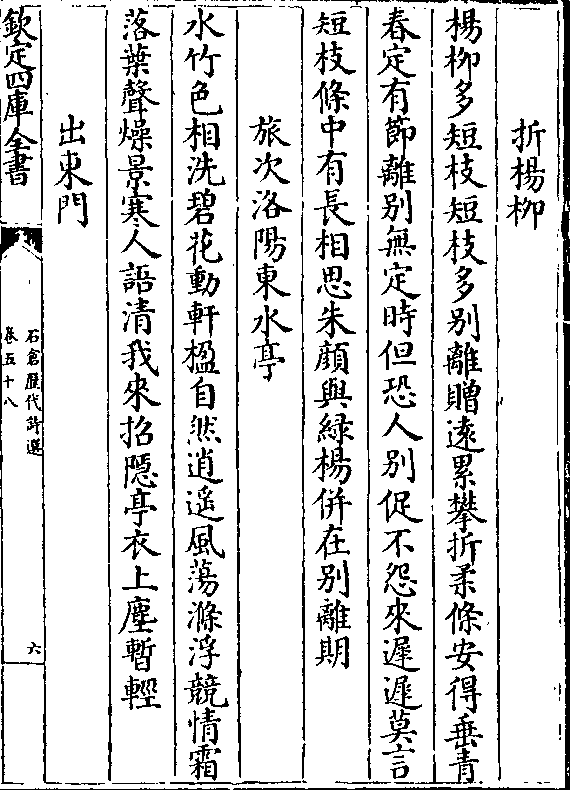 折楊柳
楊柳多短枝短枝多别離贈逺累攀折柔條安得垂青
春定有節離别無定時但恐人别促不怨來遲遲莫言
短枝條中有長相思朱顔與緑楊併在别離期
旅次洛陽東水亭
水竹色相洗碧花動軒楹自然逍遥風蕩滌浮競情霜
落葉聲燥景寒人語清我來招隠亭衣上塵暫輕
出東門
欽定四庫全書
石倉歷代詩選
卷五十八
六